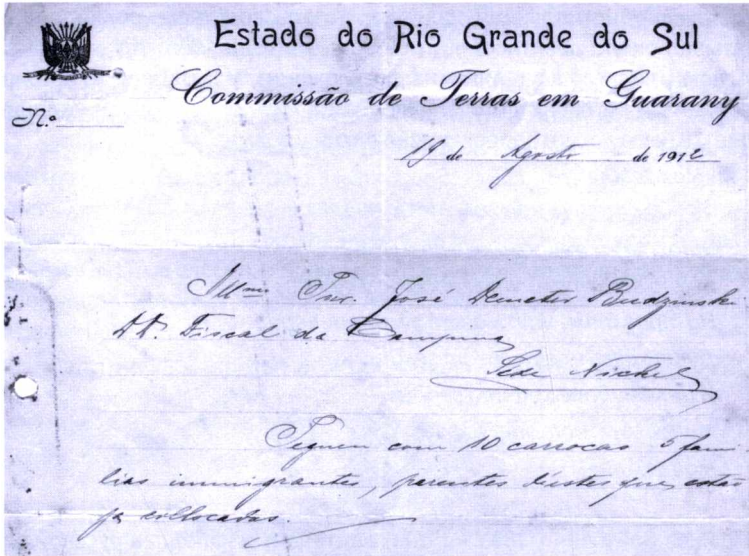 Estado do Rio Grande do Sul
Commissão de Terras em Guarany
N.º
19 de Agosto de 1912
Illmo Snr. José Demeter Budzinski
DD. Fiscal da Campina
Sede Nickel
Seguem com 10 carroças 5 fami-
lias immigrantes, parentes distes que estão
ja collocadas.